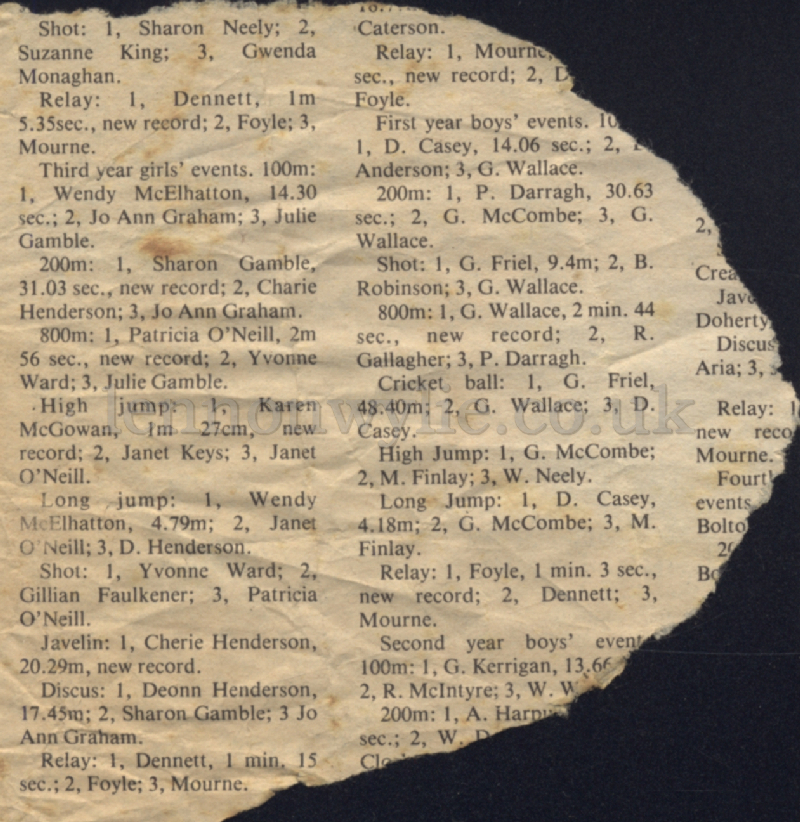 Shot: 1, Sharon Neely; 2,
Suzanne King; 3, Gwenda
Monaghan.
Relay: 1, Dennett, 1m
5.35sec., new record; 2, Foyle; 3,
Mourne.
Third year girls' events. 100m:
1, Wendy McElhatton, 14.30
sec.; 2, Jo Ann Graham; 3, Julie
Gamble.
200m: 1, Sharon Gamble,
31.03 sec., new record; 2, Charie
Henderson; 3, Jo Ann Graham.
800m: 1, Patricia O'Neill, 2m
56 sec., new record; 2, Yvonne
Ward; 3, Julie Gamble.
High jump: 1, Karen
McGowan, 1m 27cm, new
record; 2, Janet Keys; 3, Janet
O'Neill.
Long jump: 1, Wendy
McElhatton, 4.79m; 2, Janet
O'Neill; 3, D. Henderson.
Shot: 1, Yvonne Ward; 2,
Gillian Faulkener; 3, Patricia
O'Neill.
Javelin: 1, Cherie Henderson,
20.29m, new record.
Discus: 1, Deonn Henderson,
17.45m; 2, Sharon Gamble; 3 Jo
Ann Graham.
Relay: 1, Dennett, 1 min. 15
sec.; 2, Foyle; 3, Mourne.
Caterson.
Relay: 1, Mourne,
sec., new record; 2,
Foyle.
First year boys' events.
1, D. Casey, 14.06 sec.; 2,
Anderson; 3, G. Wallace.
200m: 1, P. Darragh, 30.63
sec.; 2, G. McCombe; 3, G.
Wallace.
Shot: 1, G. Friel, 9.4m; 2, B.
Robinson; 3, G. Wallace.
800m: 1, G. Wallace, 2 min. 44
sec., new record; 2, R.
Gallagher; 3, P. Darragh.
Cricket ball: 1, G. Friel,
48.40m; 2, G. Wallace; 3, D.
Casey.
High Jump: 1, G. McCombe;
2, M. Finlay; 3, W. Neely.
Long Jump: 1, D. Casey,
4.18m; 2, G. McCombe; 3, M.
Finlay.
Relay: 1, Foyle, 1 min. 3 sec.,
new record; 2, Dennett; 3,
Mourne.
Second year boys'
100m: 1, G. Kerrigan, 13.66
2, R. McIntyre; 3, W.
200m: 1, A.
sec.; 2, W.
2,
Doherty
Discus
Aria; 3,
Relay:
new
Mourne.
events
lennonwylie.co.uk